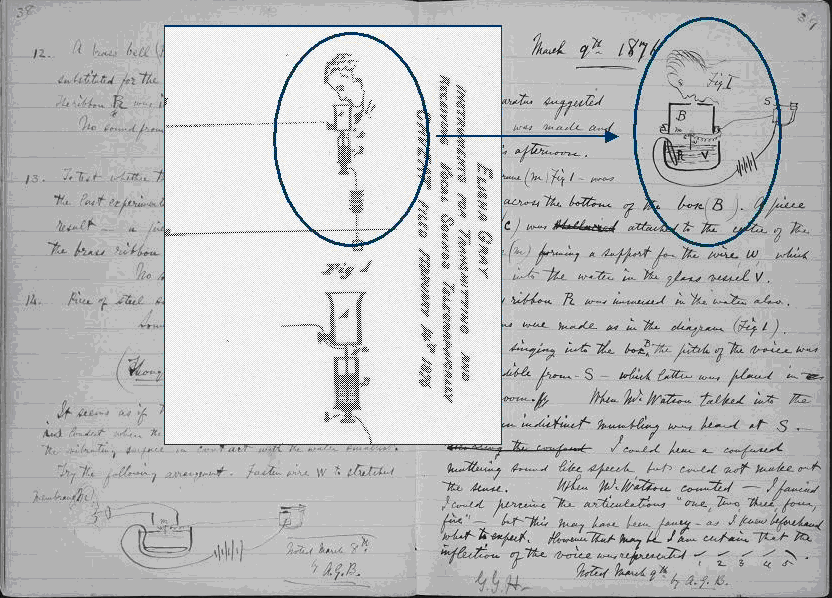 38
12. A brass bell
substituted for the
The ribbon R was
No sound from
13. To test whether
the last experiment
result — a
the brass ribbon
No
14. Piece of steel
(Thong
It seems as if
the vibrating surface in contact with the water
Try the following arrangement. Fasten wire W to stretched
membrane
m
Noted March 8th.
by A.G.B.
ELISHA GRAY
INSTRUMENTS FOR TRANSMITTING AND
RECEIVING VOCAL SOUNDS TELEGRAPHICALLY
CAVEAT FILED FEBRUARY 14th 1876
Fig 1
39
March 9th 1876
Fig 1
B
S
m
R
V
apparatus suggested
was made and
afternoon.
(m) Fig 1 — was
across the bottom of the box (B). A piece
(C) was attached to the centre of the
(m) forming a support for the wire W, which
into the water in the glass vessel V.
ribbon R was immersed in the water also.
were made as in the diagram (Fig 1).
singing into the box B, the pitch of the voice was
audible from S — which latter was placed in
room. When Mr. Watson talked into the
an indistinct mumbling was heard at S.
I could hear a confused
muttering sound like speech but could not make out
the sense. When Mr. Watson counted — I fancied
I could perceive the articulations "one, two, three, four,
five" — but this may have been fancy — as I knew beforehand
what to expect. However that may be I am certain that the
inflection of the voice was represented
1 2 3 4 5
Noted March 9th
by A.G.B.
G.G.H.